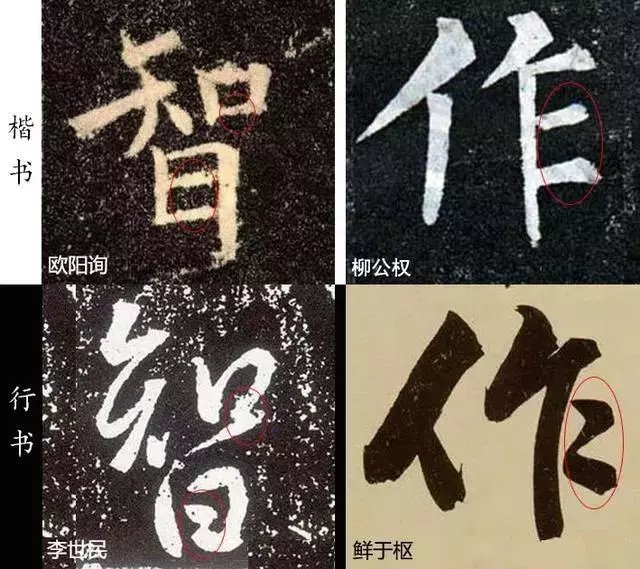 楷书
智
作
欧阳询
柳公权
行书
智
作
李世民
鲜于枢